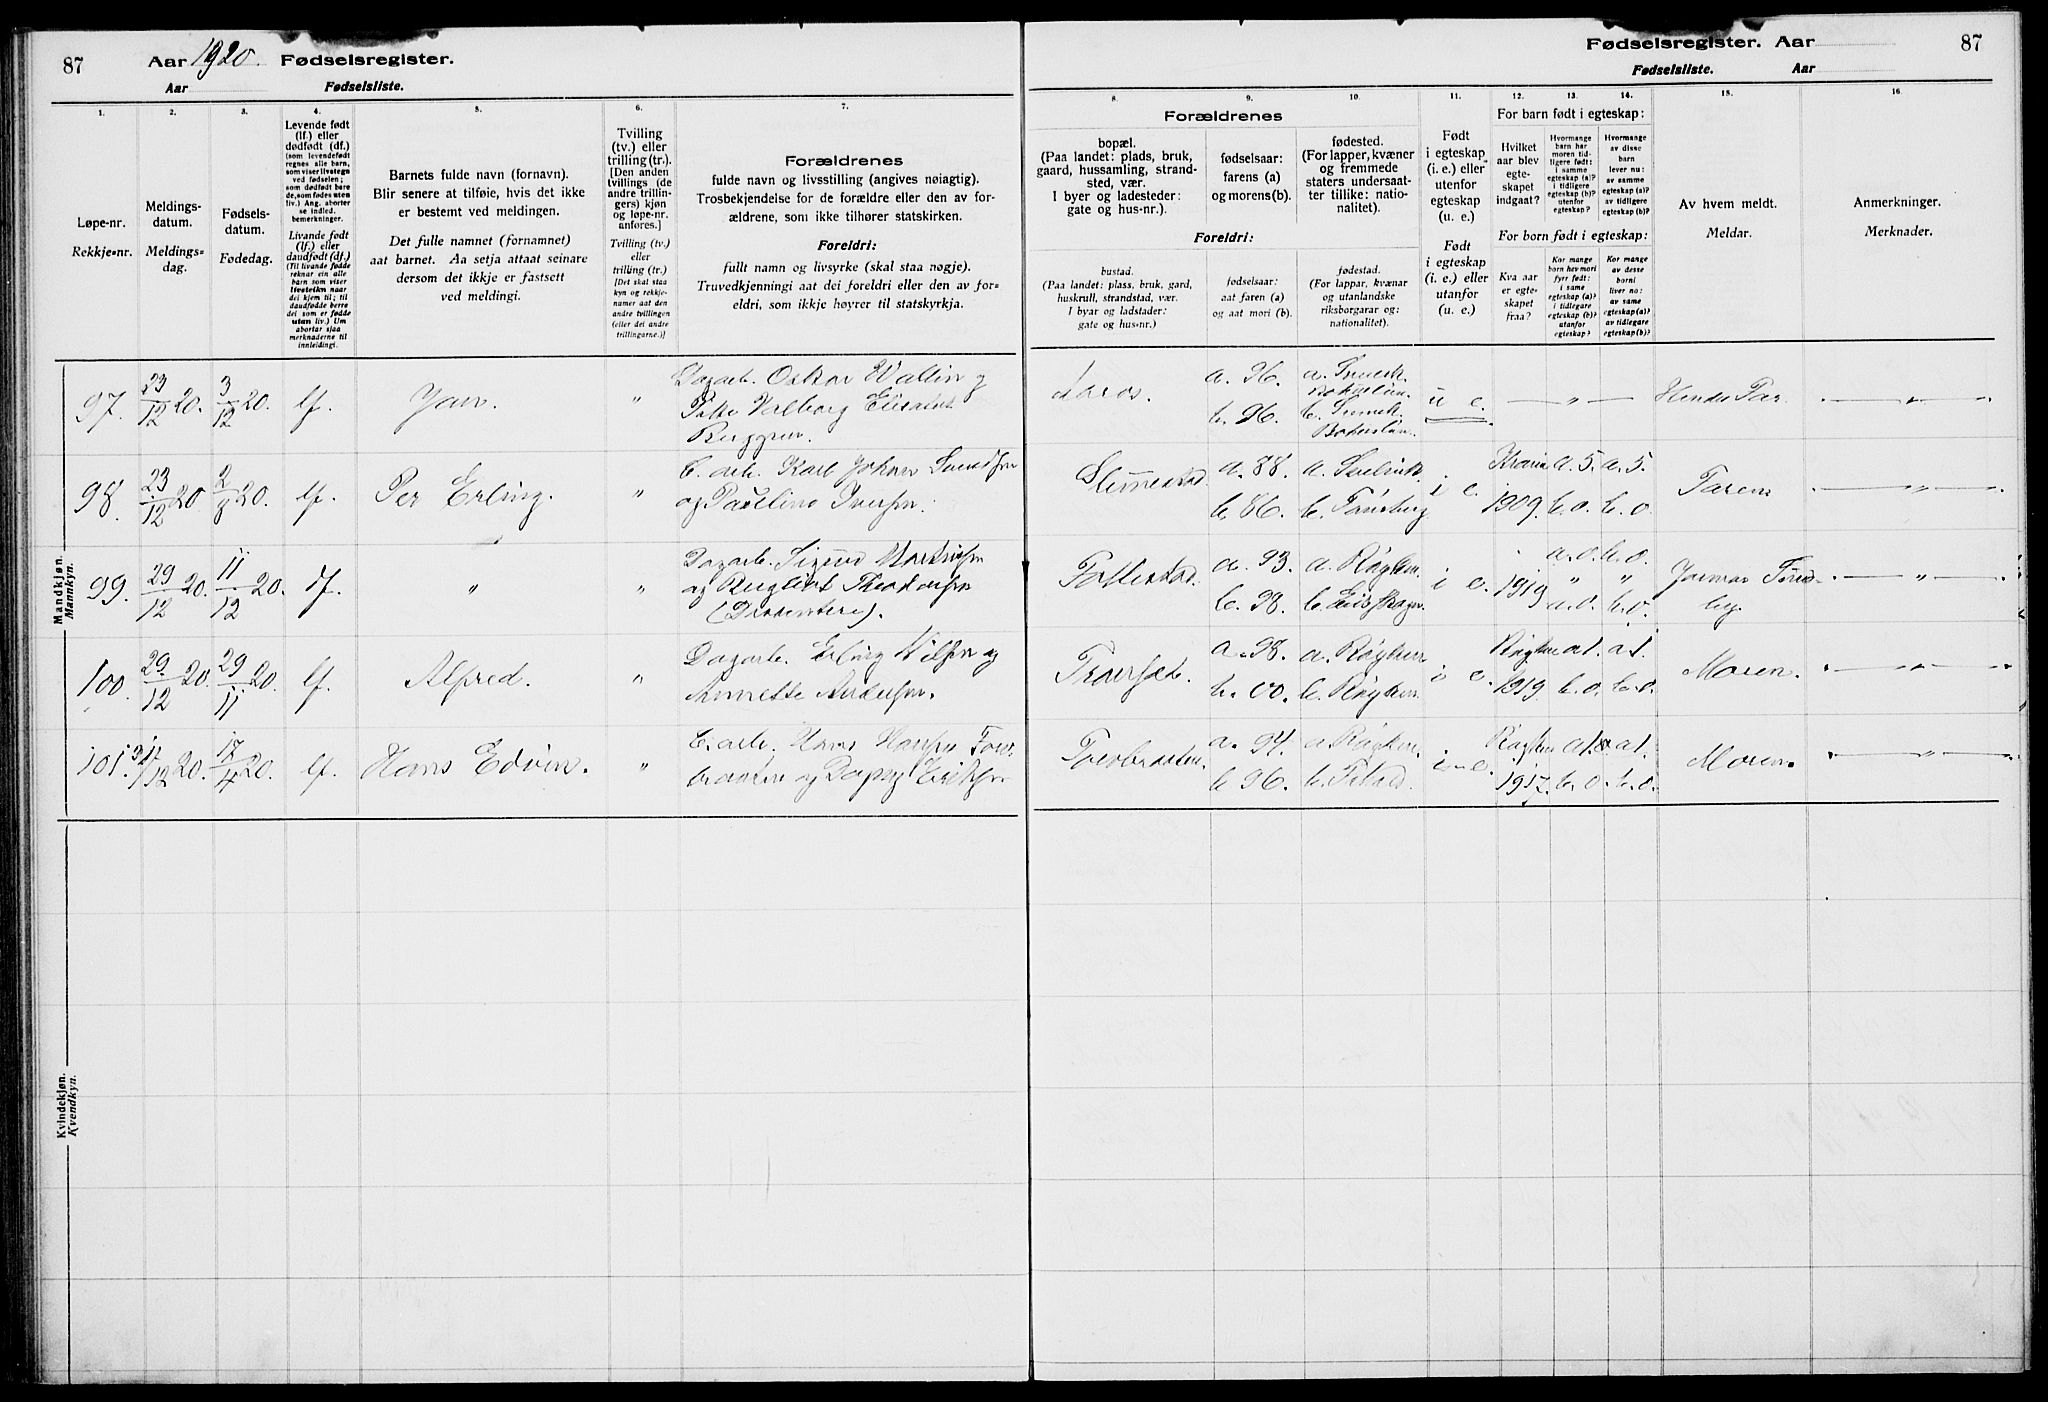 87
Aar 1920. Fødselsregister.
Aar Fødselsliste.
Fødselsregister. Aar
87
Fødselsliste. Aar
1.
2.
3.
4.
5.
6.
7.
8.
9.
10.
11.
12.
13.
14.
15.
16.
Løpe-nr.
Rekkje=nr.
Meldings-
datum.
Meldings=
dag.
Fødsels-
datum.
Fødedag.
Levende født
(lf.) eller
dødfødt (df.)
(som levendefødt
regnes alle barn,
som viser livstegn
ved fødselen;
som dødfødt bare
de, som fødes uten
liv.) Ang. aborter
se indled.
bemerkninger.
Livande født
(lf.) eller
daudfødt (df.)
(Til livande fødde
reknar ein alle
born som viser
livsteikn naar
dei kjem til; til
daudfødde berre
dei som er fødde
utan liv.) Um
abortar sjaa
merknaderne til
innleidingi.
Barnets fulde navn (fornavn).
Blir senere at tilføie, hvis det ikke
er bestemt ved meldingen.
Det fulle namnet (fornamnet)
aat barnet. Aa setja attaat seinare
dersom det ikkje er fastsett
ved meldingi.
Tvilling
(tv.) eller
trilling (tr.).
[Den anden
tvillings (de
andre trillin-
gers) kjøn
og løpe-nr.
anføres.]
Tvilling (tv.)
eller
trilling (tr.)
[Det skal staa
kyn og rekkje-
numer aat den
andre tvillingen
(eller dei andre
trillingarne.)]
Forældrenes
fulde navn og livsstilling (angives nøiagtig).
Trosbekjendelse for de forældre eller den av for-
ældrene, som ikke tilhører statskirken.
Foreldri:
fullt namn og livsyrke (skal staa nøgje).
Truvedkjenningi aat dei foreldri eller den av for=
eldri, som ikkje høyrer til statskyrkja.
Forældrenes
bopæl.
(Paa landet: plads, bruk,
gaard, hussamling, strand-
sted, vær.
I byer og ladesteder:
gate og hus-nr.).
fødselsaar:
farens (a)
og morens (b).
fødested.
(For lapper, kvæner
og fremmede
staters undersaat-
ter tillike: natio-
nalitet).
Foreldri:
bustad.
(Paa landet: plass, bruk, gard,
huskrull, strandstad, vær.
I byar og ladstader:
gate og hus=nr.)
fødselsaar:
aat faren (a)
og aat mori (b).
fødestad.
(For lappar, kvænar
og utanlandske
riksborgarar og:
nationalitet).
Født
i egteskap
(i. e.) eller
utenfor
egteskap
(u. e.)
Født
i egteskap
(i. e.) eller
utanfor
(u. e.)
For barn født i egteskap:
Hvilket
aar blev
egte-
skapet
indgaat?
Hvormange
barn har
moren tid-
ligere født:
i samme
egteskap (a)?
i tidligere
egteskap (b)?
utenfor
egteskap?
Hvormange
av disse
barn
lever nu:
av samme
egteskap (a)?
av tidligere
egteskap (b)?
For born født i egteskap:
Kva aar
er egte-
skapet
fraa?
Kor mange
born hev mori
fyrr født:
i same
egteskap (a)?
i tidlegare
egteskap (b)?
utanfor
egteskap?
Kor mange
av desse
borni
liver no:
av same
egteskap (a)?
av tidlegare
egteskap (b)?
Av hvem meldt.
Meldar.
Anmerkninger.
Merknader.
Mandkjøn.
Mannkyn.
97. 23/12 20. 3/12 20. lf. " Dagarb. Oskar Wallin og
Valborg
Berggren.
a. 96. b. 96. u e. "
98. 23/12 20 2/8 20. lf. Per Erling. " E. arb. Karl Johan Svendsen
og Pauline Iversen.
Slemmestad. a. 88. b. 86. b. Tønsberg i e. 1909. a. 5. b. o. a. 5. b. o. Faren "
99. 29/12 20. 11/12 20. df. " " Dagarb. Sigurd
og
(Dissentere).
a. 93. b. 98. a. Røyken. i e. 1919 a. o. b. o. "
100. 29/12 20. 29/11 20. lf. Alfred. " Dagarb. Erling Nilsen og
Annette Andersen.
a. 98. b. 00. a. Røyken b. Røyken. i e. Røyken 1919. a 1. b. o. a 1. b. o. Moren. "
101. 31/12 20. 17/4 20. lf. Hans Edvin. " E. arb. Hans Hansen
og
a. 94. b 96. a Røyken i e. Røyken 1917. a 1. b. o. a 1. b. o. Moren. "
Kvindekjøn.
Kvendkyn.